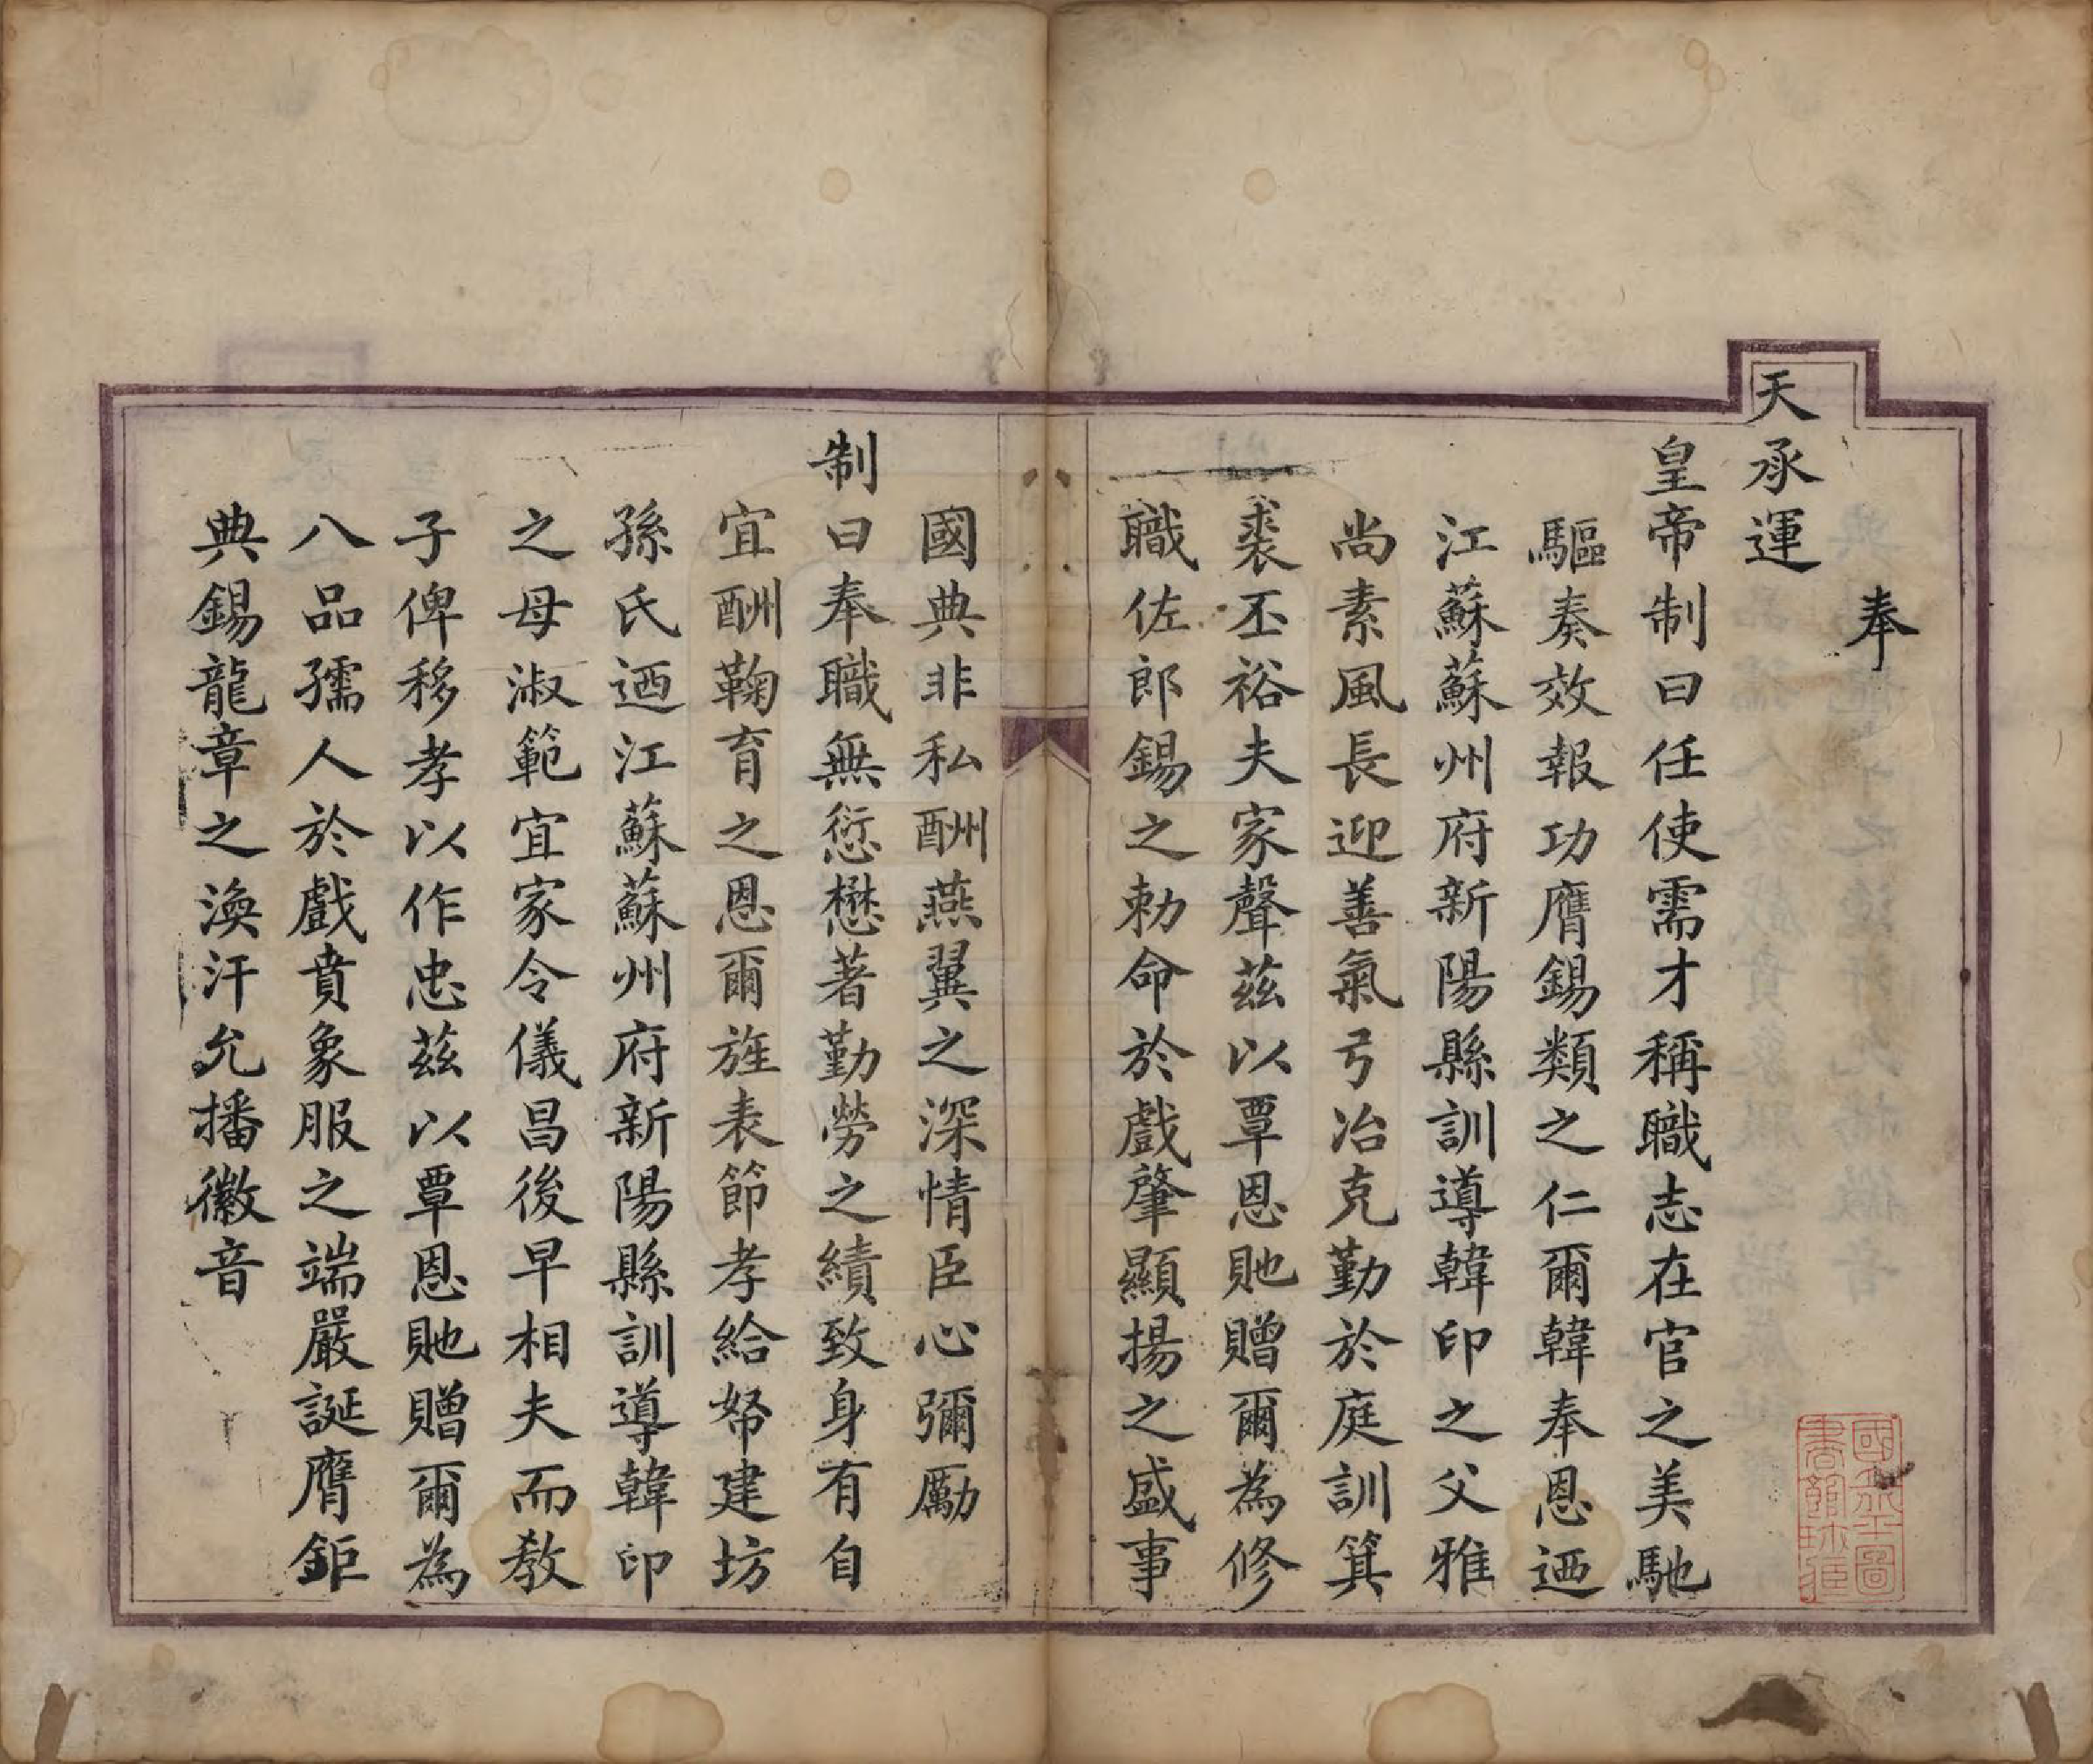 奉
天承運
皇帝制曰任使需才稱職志在官之美馳
驅奏效報功膺錫類之仁爾韓奉恩迺
江蘇蘇州府新陽縣訓導韓印之父雅
尚素風長迎善氣弓冶克勤於庭訓箕
裘丕裕夫家聲茲以覃恩貤贈爾為修
職佐郎錫之勅命於戲肇顯揚之盛事
國典非私酬燕翼之深情臣心彌勵
制曰奉職無愆懋著勤勞之績致身有自
宜酬鞠育之恩爾旌表節孝給帑建坊
孫氏迺江蘇蘇州府新陽縣訓導韓印
之母淑範宜家令儀昌後早相夫而教
子俾移孝以作忠茲以覃恩貤贈爾為
八品孺人於戲賁象服之端嚴誕膺鉅
典錫龍章之渙汗允播徽音
國立北平圖
書館珍藏